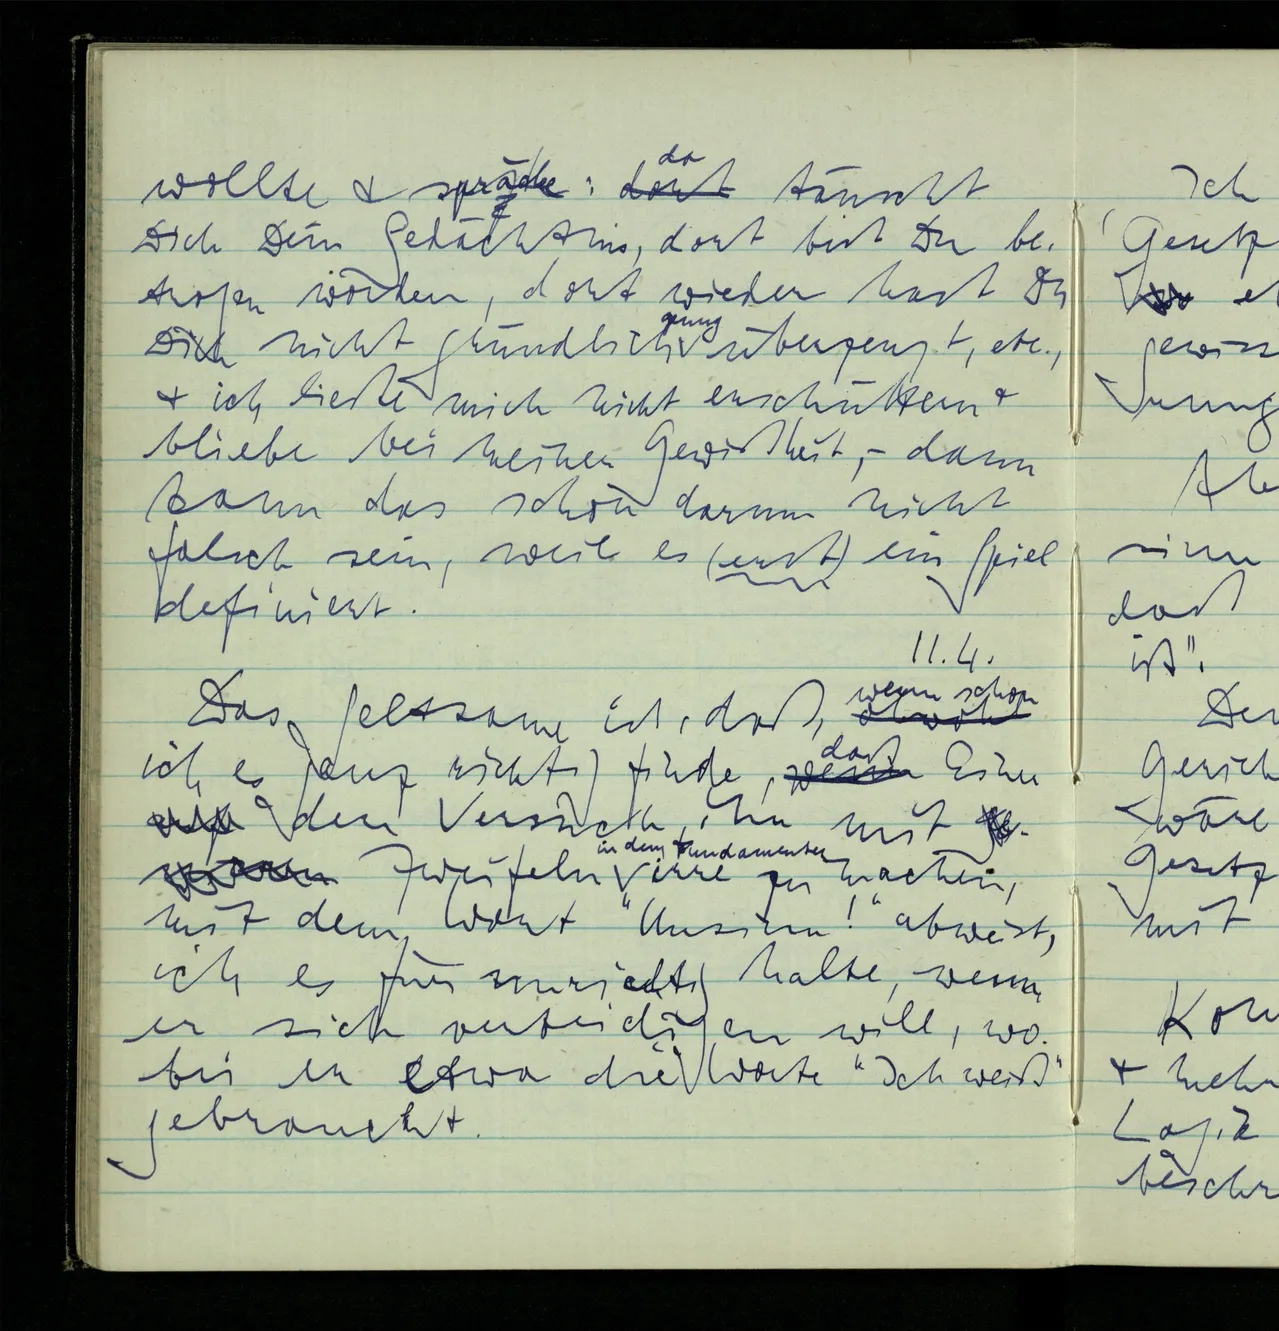 wollte & spräche: dort da täuscht
Dich Dein Gedächtnis, dort bist Du be-
trogen worden, dort wieder hast Du
Dich nicht gründlich genug überzeugt, etc.,
& ich ließe mich nicht erschüttern &
bliebe bei meiner Gewißheit, – dann
kann das schon darum nicht
falsch sein, weil es (erst) ein Spiel
definiert.
11.4.
Das Seltsame ist, daß, obwohl wenn schon
ich es ganz richtig finde, wenn daß Einer
den Versuch, ihn mit
Zweifeln in dem Fundamente irre zu machen,
mit dem Wort "Unsinn!" abweist,
ich es für unrichtig halte, wenn
er sich verteidigen will, wo-
bei er etwa die Worte "Ich weiß"
gebraucht.
Ich
Gesetz
gewiss
nung
sinn
daß
ist".
Gerich
wäre
Gesetz
mit
& mehr
Logik
beschr